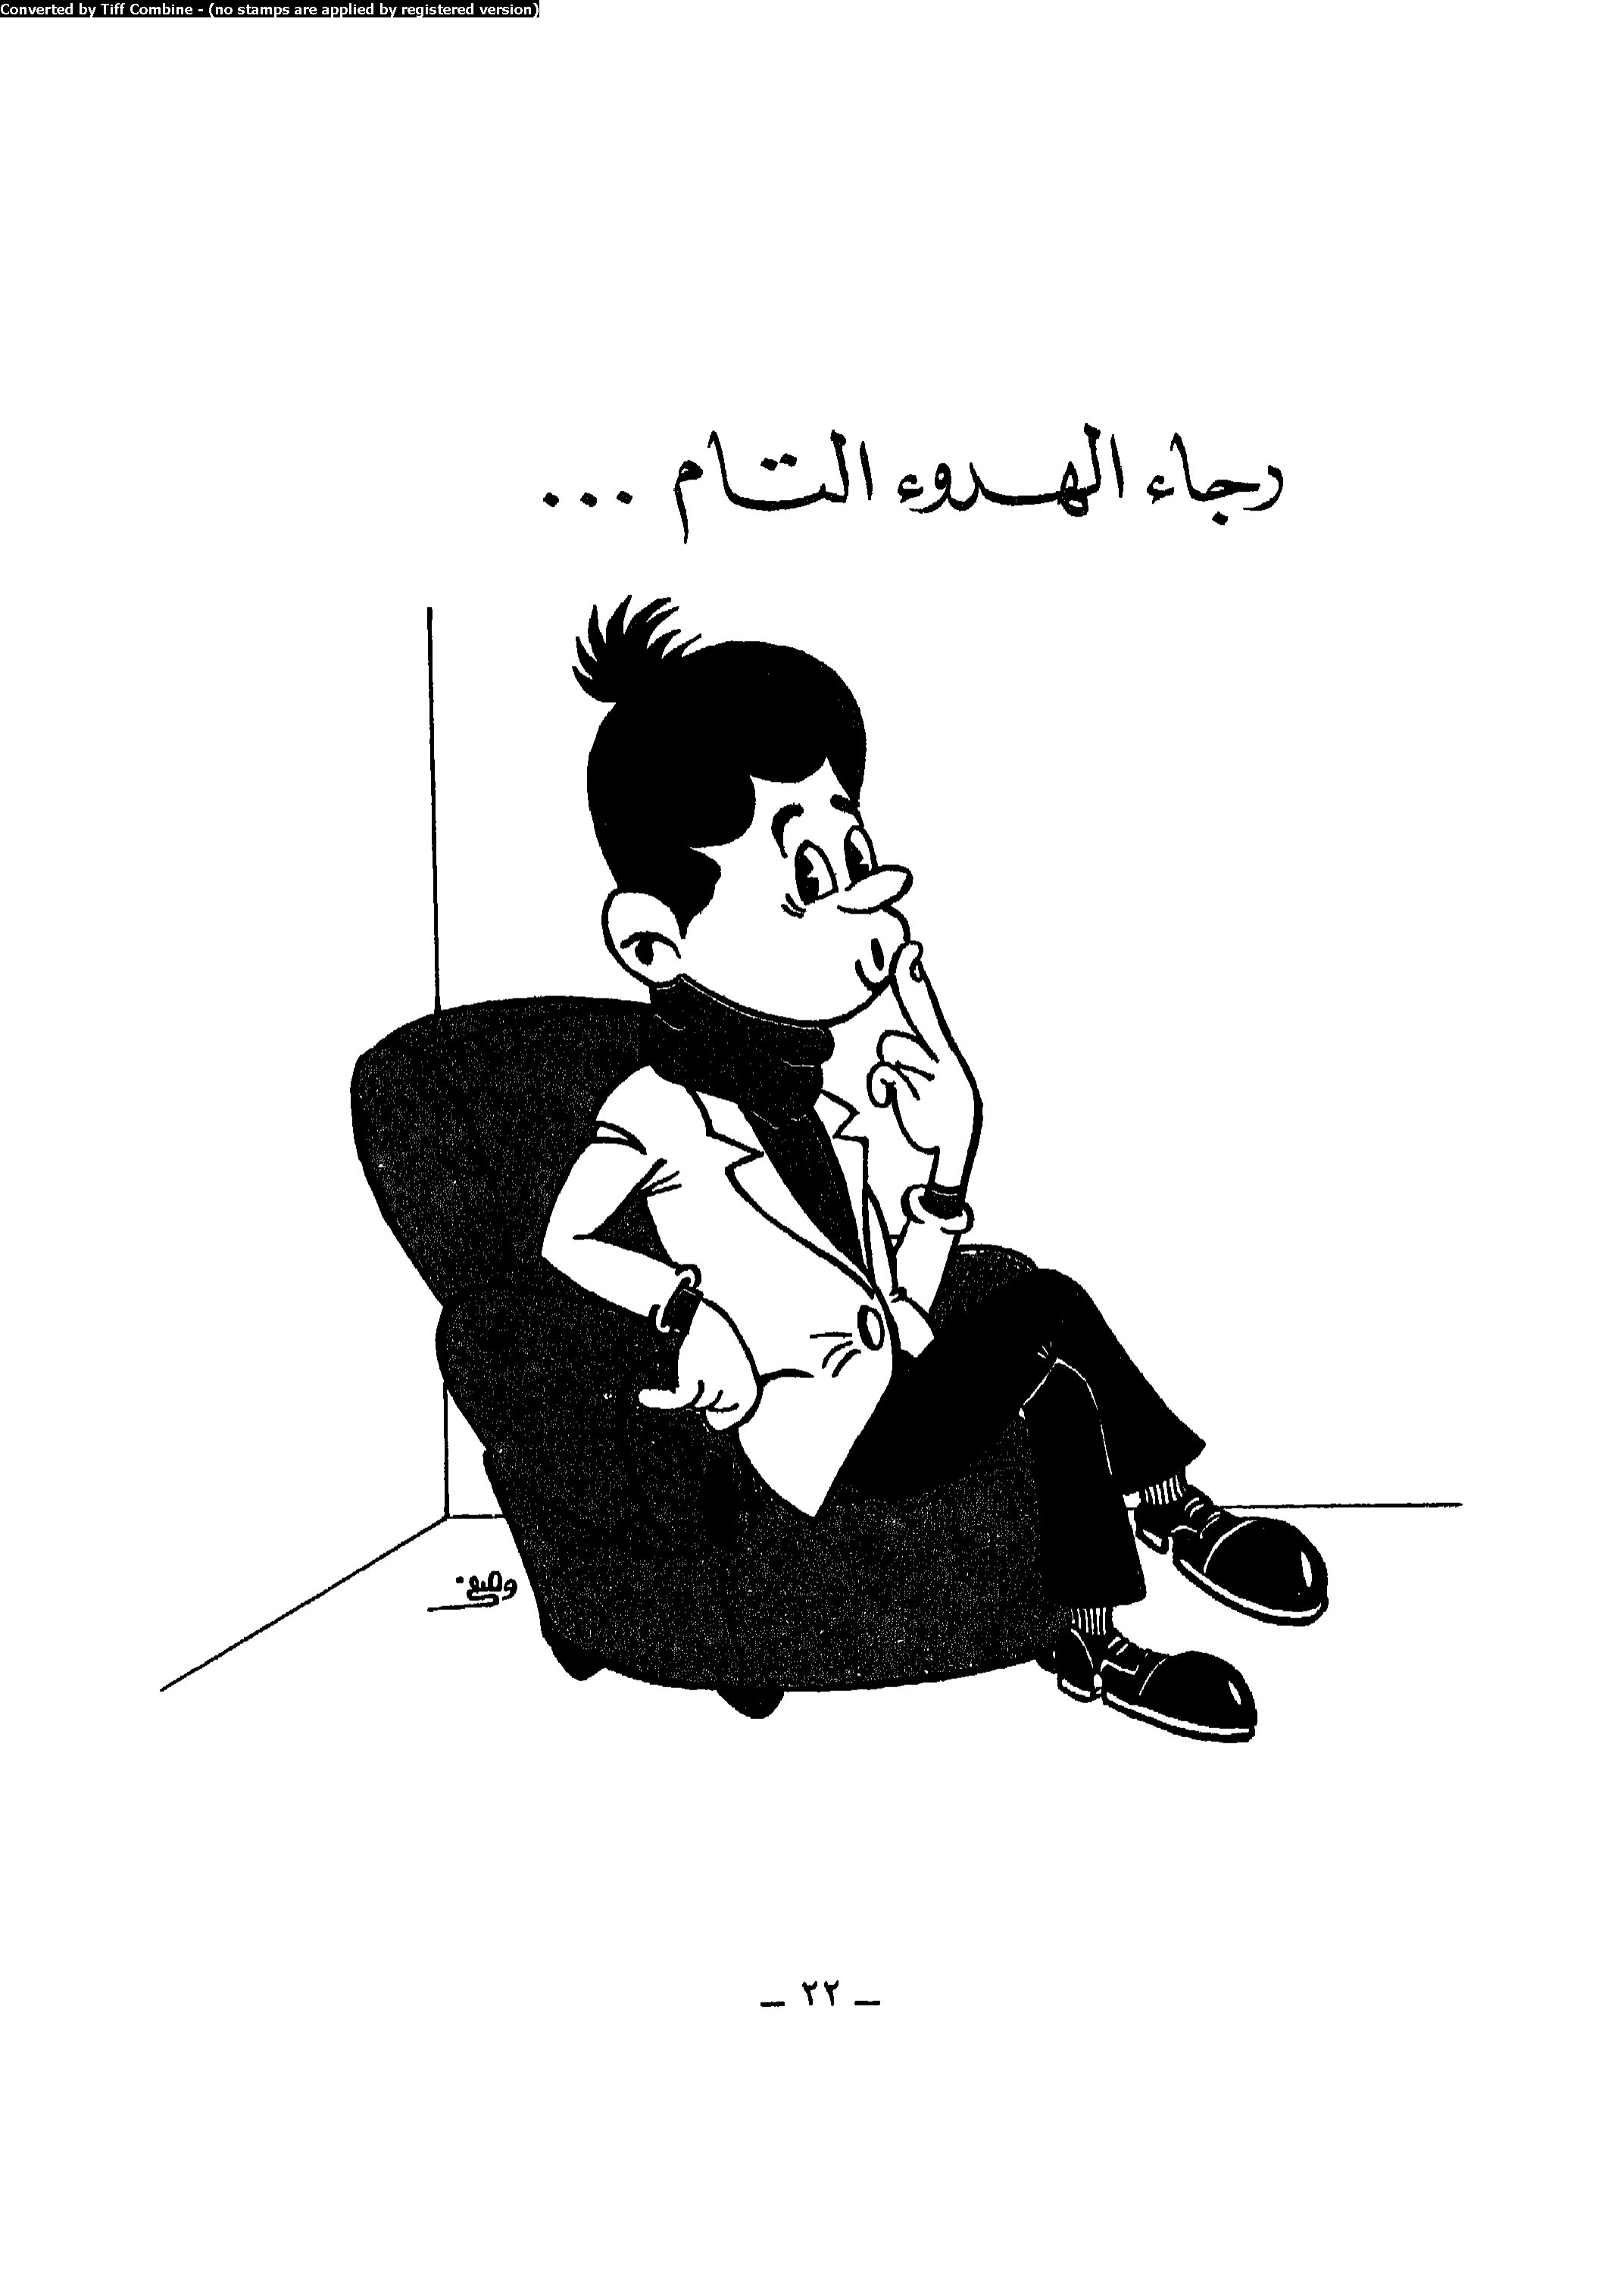 Converted by Tiff Combine - (no stamps are applied by registered version)
رجاء الهدوء التام ...
— ٢٢ —